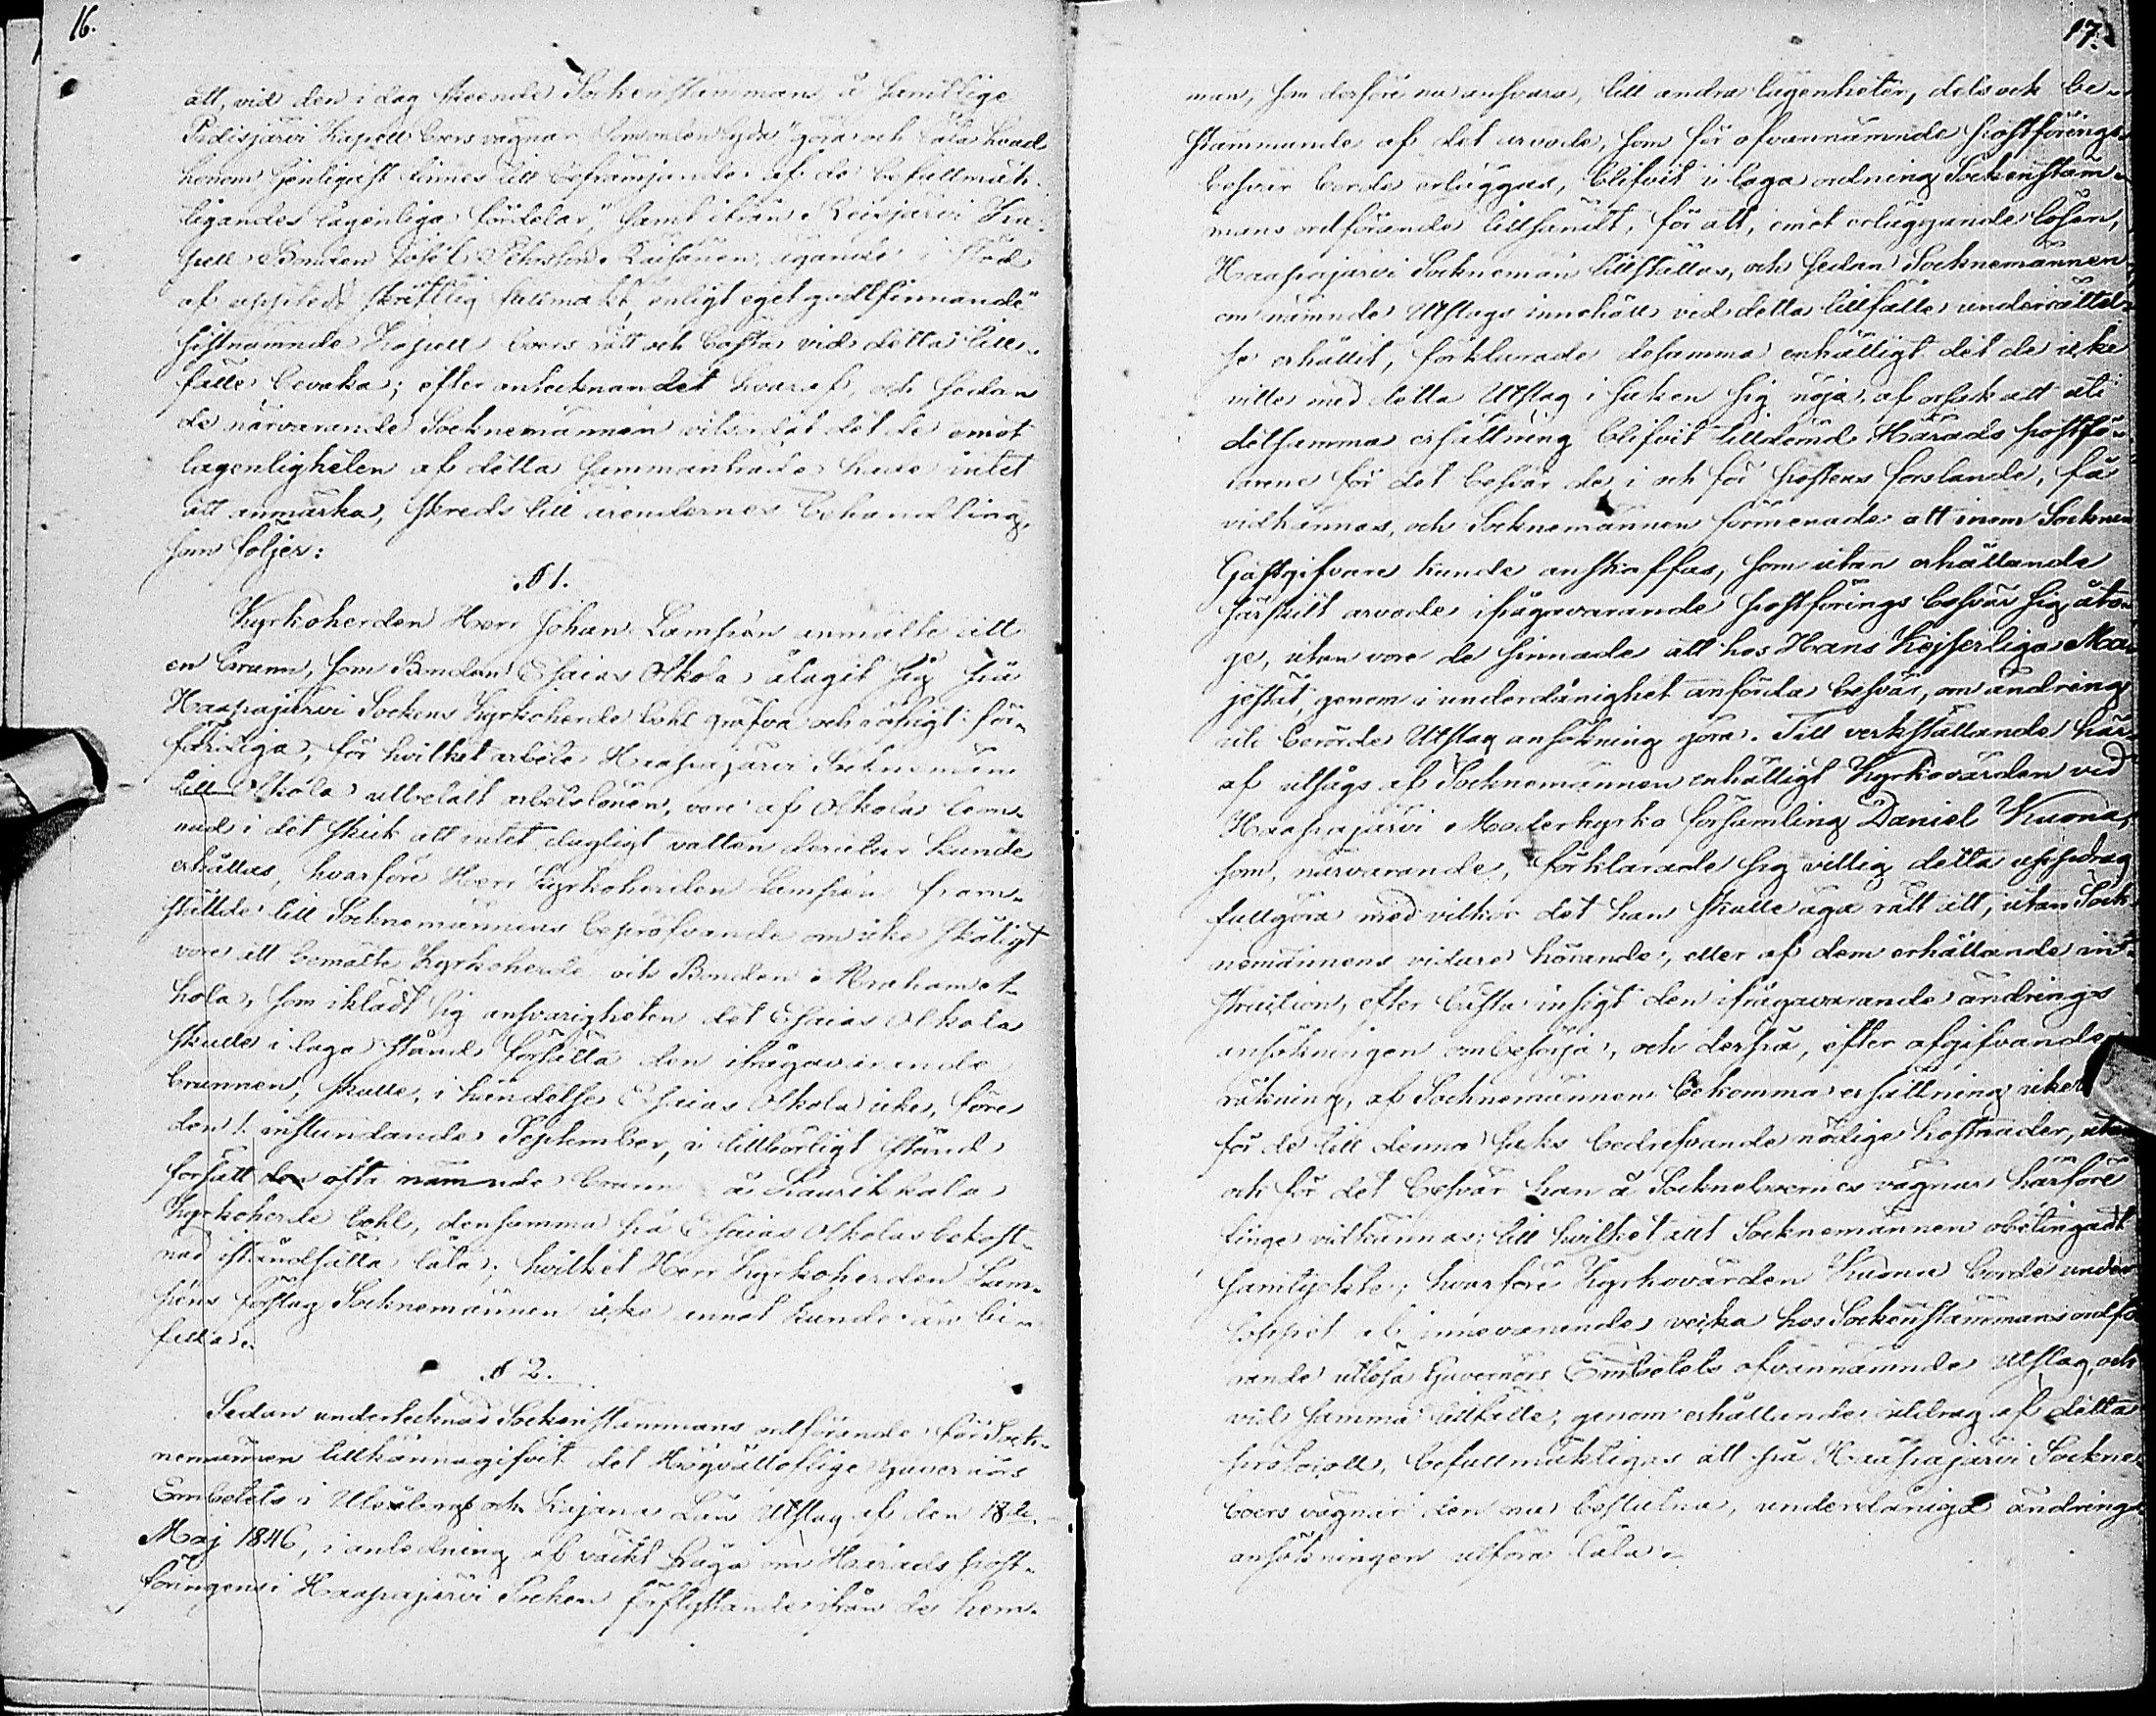 16.
att, vid den i dag skeende Sockenstämmans å samtlige
Pidisjärvi Kapell boers vägnar "göra och låta hvad
honom jenligast finnes till befrämjande af de befullmäk-
tigandes lagenliga fördelar", samt ifrån Reisjärvi Ka-
pell Bonden Josef Pehrsson Räisänen, ägande i stöd
af uppted skriftlig fullmakt "enligt eget godtfinnande"
sistnämnde Kapell boers rätt och bästa vid detta till-
fälle bevaka; efter antecknandet hvaraf, och sedan
de närvarande Socknemännen vitsordat det de emot
lagenligheten af detta sammanträde hade intet
att anmärka, skreds till ärendernes behandling,
som följer:
§ 1.
Kyrkoherden Herr Johan Lampén anmälte att
en brunn, som Bonden Esaias Olkola åtagit sig på
Haapajärvi Sockens Kyrkoherde bohl gräfva och öfrigt för-
färdiga, för hvilket arbete Haapajärvi Socknemän
till Olkola utbetalt arbetslönen, vore af Olkola lem-
nad i det skick att intet dugligt vatten derutur kunde
erhållas, hvarföre Herr Kyrkoherden Lampén fram-
stälde till Socknemännens bepröfvande om icke skäligt
vore att bemälte Kyrkoherde och Bonden Abraham Ol-
kola, som iklädt sig ansvarigheten det Esaias Olkola
skulle i laga stånd försätta den ifrågavarande
brunnen, skulle, i händelse Esaias Olkola icke, före
den 1. instundande September, i tillbörligt stånd
försatt den ofta nämnde brunn å Laurikkala
Kyrkoherde bohl, densamma på Esaias Olkolas bekost-
nad iståndsätta låta; hvilket Herr Kyrkoherden Lam-
péns förslag Socknemännen icke annat kunde än bi-
falla.
§ 2.
Sedan undertecknad Sockenstämmans ordförande för Sock-
nemännen tillkännagifvit det Högvälloflige Guvernörs
Embetets i Uleåborgs och Kajana Län Utslag af den 18de
Maj 1846, i anledning af väckt fråga om Härads post-
föringens i Haapajärvi Socken förflyttande ifrån de hem-
17.
man, som derföre nu ansvara, till andra lägenheter, dels ock be-
stämmande af det arvode, som för ofvannämnde postförings-
besvär borde erläggas, blifvit i laga ordning Sockenstäm-
mans ordförande tillsändt, för att, emot erläggande lösen,
Haapajärvi Socknemän tillställas, och sedan Socknemännen
om nämnde Utslags innehåll vid detta tillfälle underrättel-
se erhållit, förklarade desamma enhälligt det de icke
ville med detta Utslag i saken sig nöja, af orsak att uti
detsamma ersättning blifvit tilldömd Härads postfö-
rarene för det besvär de i och för postens forslande, få
vidkännas, och Socknemännen förmenade att inom Socknen
Gästgifvare kunde anskaffas, som utan erhållande
särskilt arvode ifrågavarande postförings besvär sig åto-
ge, utan vore de sinnade att hos Hans Kejserliga Ma-
jestät, genom i underdånighet anförda besvär, om ändring
uti berörde Utslag ansökning göra. Till verkställande här-
af utsågs af Socknemännen enhälligt Kyrkovärden vid
Haapajärvi Moderkyrko församling Daniel Kuona,
som, närvarande, förklarade sig villig detta uppdrag
fullgöra med vilkor det han skulle äga rätt att, utan Sock-
nemännens vidare hörande, eller af dem erhållande in-
struction, efter bästa insigt den ifrågavarande ändrings
ansökningen ombesörja, och derpå, efter afgifvande
räkning, af Socknemännen bekomma ersättning icke
för de till denna saks bedrifvande nödige kostnader, utan
och för det besvär han å Socknebornes vägnar härföre
finge vidkännas; till hvilket allt Socknemännen obetingadt
samtyckte; hvarföre Kyrkovärden Kuona borde under
loppet af innevarande vecka hos Sockenstämmans ordfö-
rande utlösa Guvernörs Embetets ofvannämnde Utslag, och
vid samma tillfälle, genom erhållande utdrag af detta
protocoll, befullmäktigas att på Haapajärvi Sockne
boers vägnar den nu beslutna, underdåniga ändrings
ansökningen utföra låta.